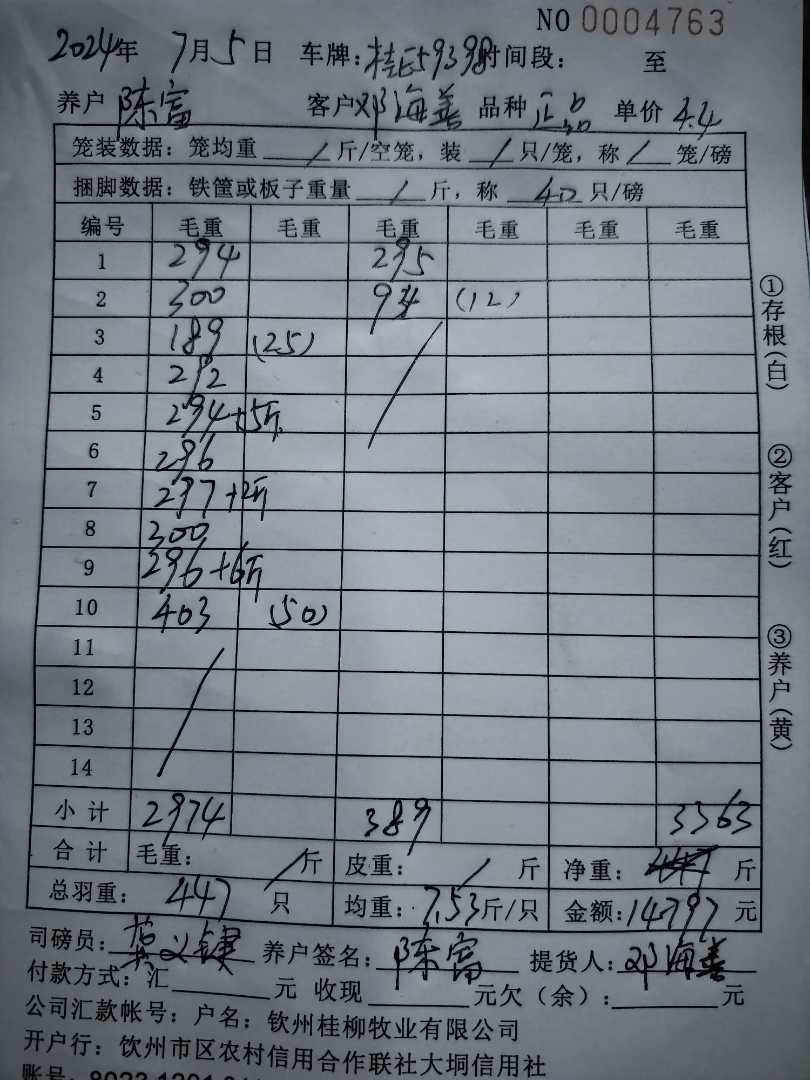 NO 0004763
2024年 7月5日 车牌:桂E59398 时间段: 至
养户 陈富 客户 邓海善 品种 正品 单价 4.4
笼装数据:笼均重 / 斤/空笼,装 / 只/笼,称 / 笼/磅
捆脚数据:铁筐或板子重量 / 斤,称 40 只/磅
编号 毛重 毛重 毛重 毛重 毛重 毛重
1 294 295
2 300 94 (12)
3 189 (25)
4 292
5 294+5斤
6 296
7 297+2斤
8 300
9 296+6斤
10 403 (50)
11
12
13
14
小计 2974 389 3363
合计 毛重: / 斤 皮重: / 斤 净重: 斤
总羽重: 447 只 均重:7.53斤/只 金额:14797元
司磅员: 义键 养户签名:陈富 提货人:邓海善
付款方式:汇 元 收现 元欠(余): 元
公司汇款帐号:户名:钦州桂柳牧业有限公司
开户行:钦州市区农村信用合作联社大垌信用社
账号:
①存根(白)
②客户(红)
③养户(黄)